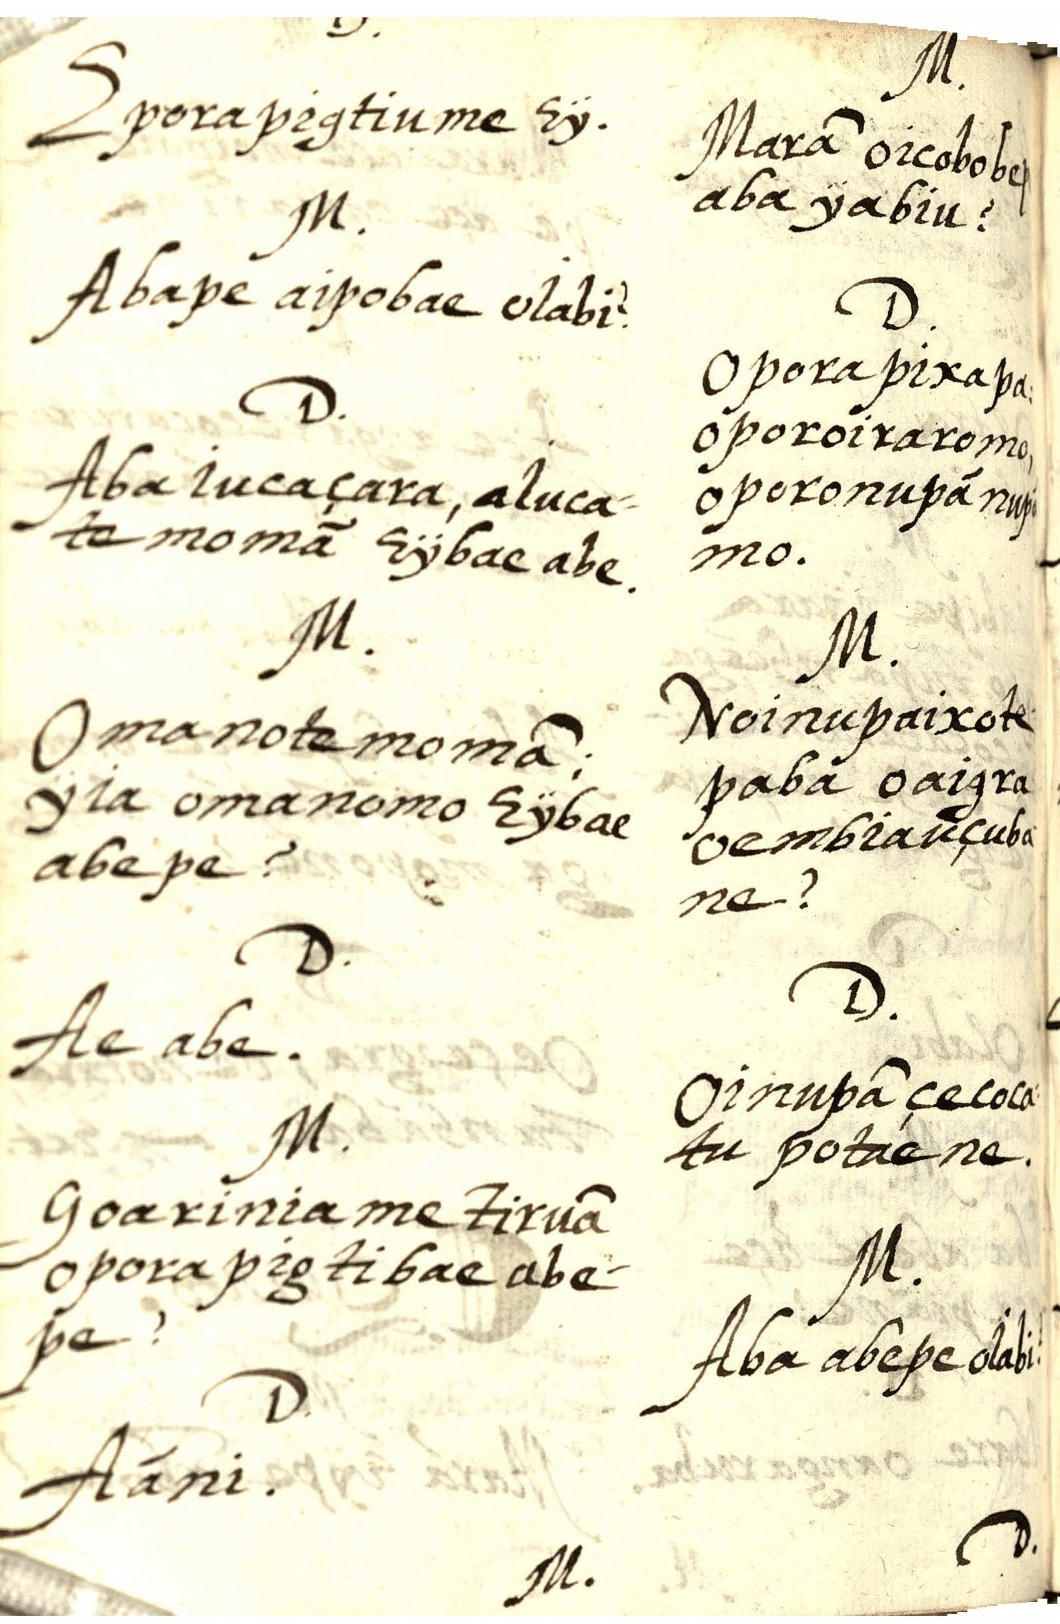 Eporapigtiume Eÿ.
M.
Abape aipobae olabi?
D.
Aba Iucaçara, aIuca-
te momã Eÿbae abe.
M.
Omanote momã;
ÿia omanomo Eÿbae
abepe?
D.
Ae abe.
M.
Goariniame tiruã
oporapigtibae abe-
pe?
D.
Aáni.
M.
M.
Marã oicobobe
aba yabiu?
D.
Oporapixapa
oporoiraromo,
oporonupã nupã
mo.
M.
Noinupaixote
pabá oaigra
oembiauçuba
ne?
D.
Oinupã çecoca-
tu potaé ne.
M.
Aba abepe olabi?
D.